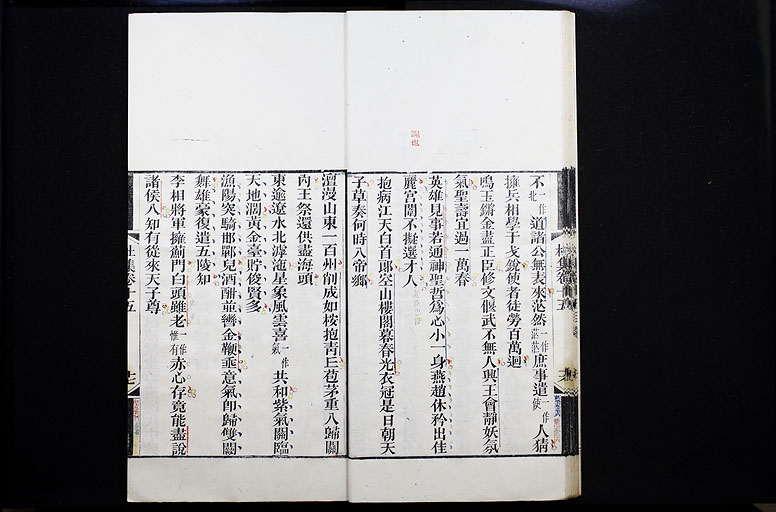 不一作北道諸公無表來茫然一作茫茫庶事遣一作使人猜
擁兵相學干戈銳使者徒勞百萬迴
鳴玉鏘金盡正臣修文偃武不無人興王會靜妖氛
氣聖壽宜過一萬春
英雄見事若通神聖哲為心小一身燕趙休矜出佳
麗宮闈不擬選才人
抱病江天白首郎空山樓閣暮春光衣冠是日朝天
子草奏何時入帝鄉
澶漫山東一百州削成如桉抱青丘苞茅重入歸關
內王祭還供盡海頭
東逾遼水北滹沱星象風雲喜一作氣共和紫氣關臨
天地濶黃金臺貯俊賢多
漁陽突騎邯鄲兒酒酣並轡金鞭垂意氣即歸雙闕
舞雄豪復遣五陵知
李相將軍擁薊門白頭雖老一作惟有赤心存竟能盡說
諸侯入知有從來天子尊
杜集卷十五